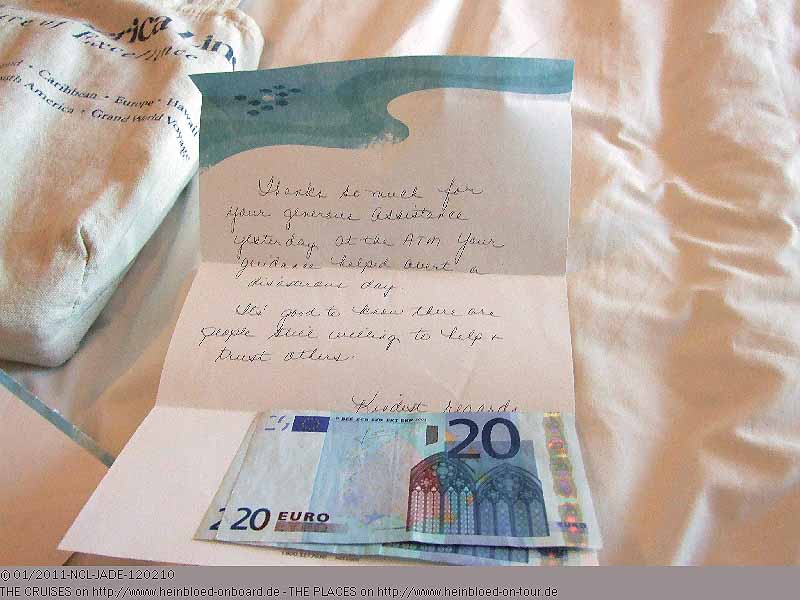 erica Line
re of Excellence
Caribbean • Europe • Hawaii
South America • Grand World Voyage
Thanks so much for
your generous assistance
yesterday at the ATM Your
guidance helped avert a
disastrous day.
It's good to know there are
people still willing to help &
trust others.
Kindest regards,
BCE ECB EZB EKT EKP 2002
20
20 EURO
©01/2011-NCL-JADE-120210
THE CRUISES on http://www.heinbloed-onboard.de - THE PLACES on http://www.heinbloed-on-tour.de